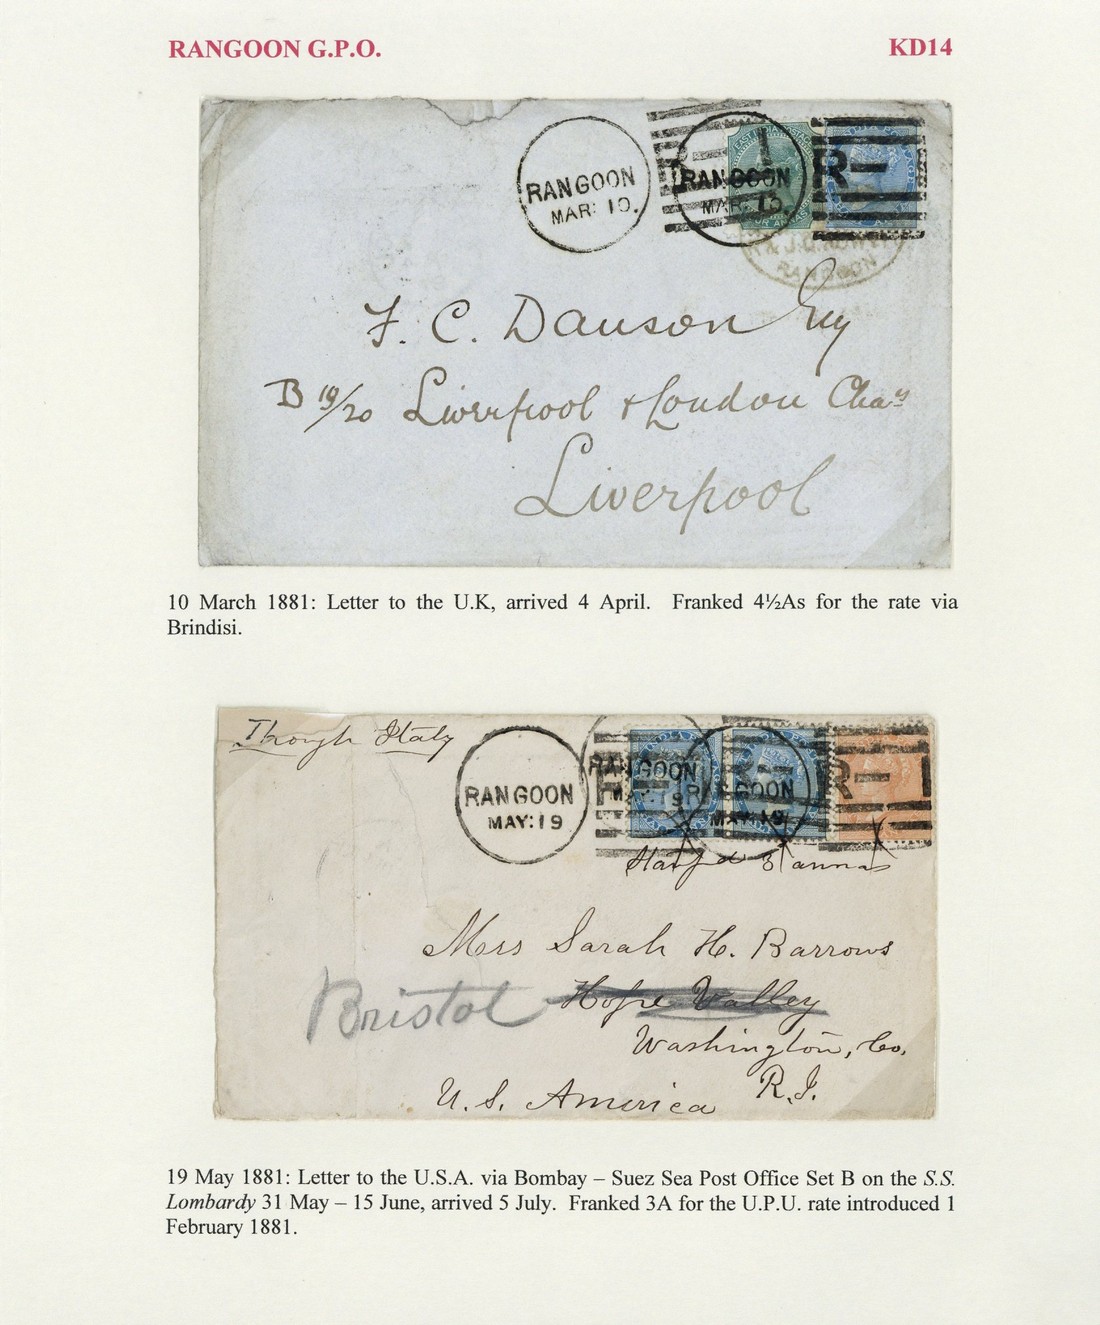 RANGOON G.P.O. KD14
RANGOON
MAR: 10.
RANGOON
MAR: 10.
R-
1
EAST INDIA POSTAGE
RANGOON
F. C. Dawson Esq
B 19/20 Liverpool & London Cha^s
Liverpool
10 March 1881: Letter to the U.K, arrived 4 April. Franked 4½As for the rate via
Brindisi.
Through Italy
RANGOON
MAY: 19
RANGOON
MAY: 19
RANGOON
MAY: 19
R-
R-1
Stamp'd 3 annas
Mrs Sarah H. Barrows
Bristol Hope Valley
Washington, Co.
R.I.
U.S. America
19 May 1881: Letter to the U.S.A. via Bombay – Suez Sea Post Office Set B on the S.S.
Lombardy 31 May – 15 June, arrived 5 July. Franked 3A for the U.P.U. rate introduced 1
February 1881.